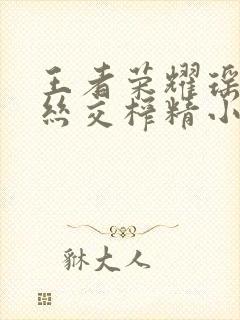 王者荣耀瑶
丝交榨精小
貅大人